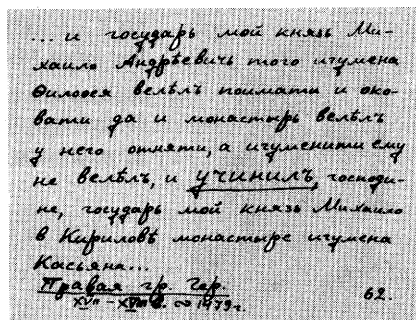 ... и государь мой князь Ми-
хаило Андрѣевичь того игумена
Филофея велѣлъ поимати и око-
вати да и монастырь велѣлъ
у него отняти, а игуменити ему
не велѣлъ, и учинилъ, господи-
не, государь мой князь Михаило
в Кириловѣ монастыре игумена
Касьяна...
Правая гр. Гер.
62.